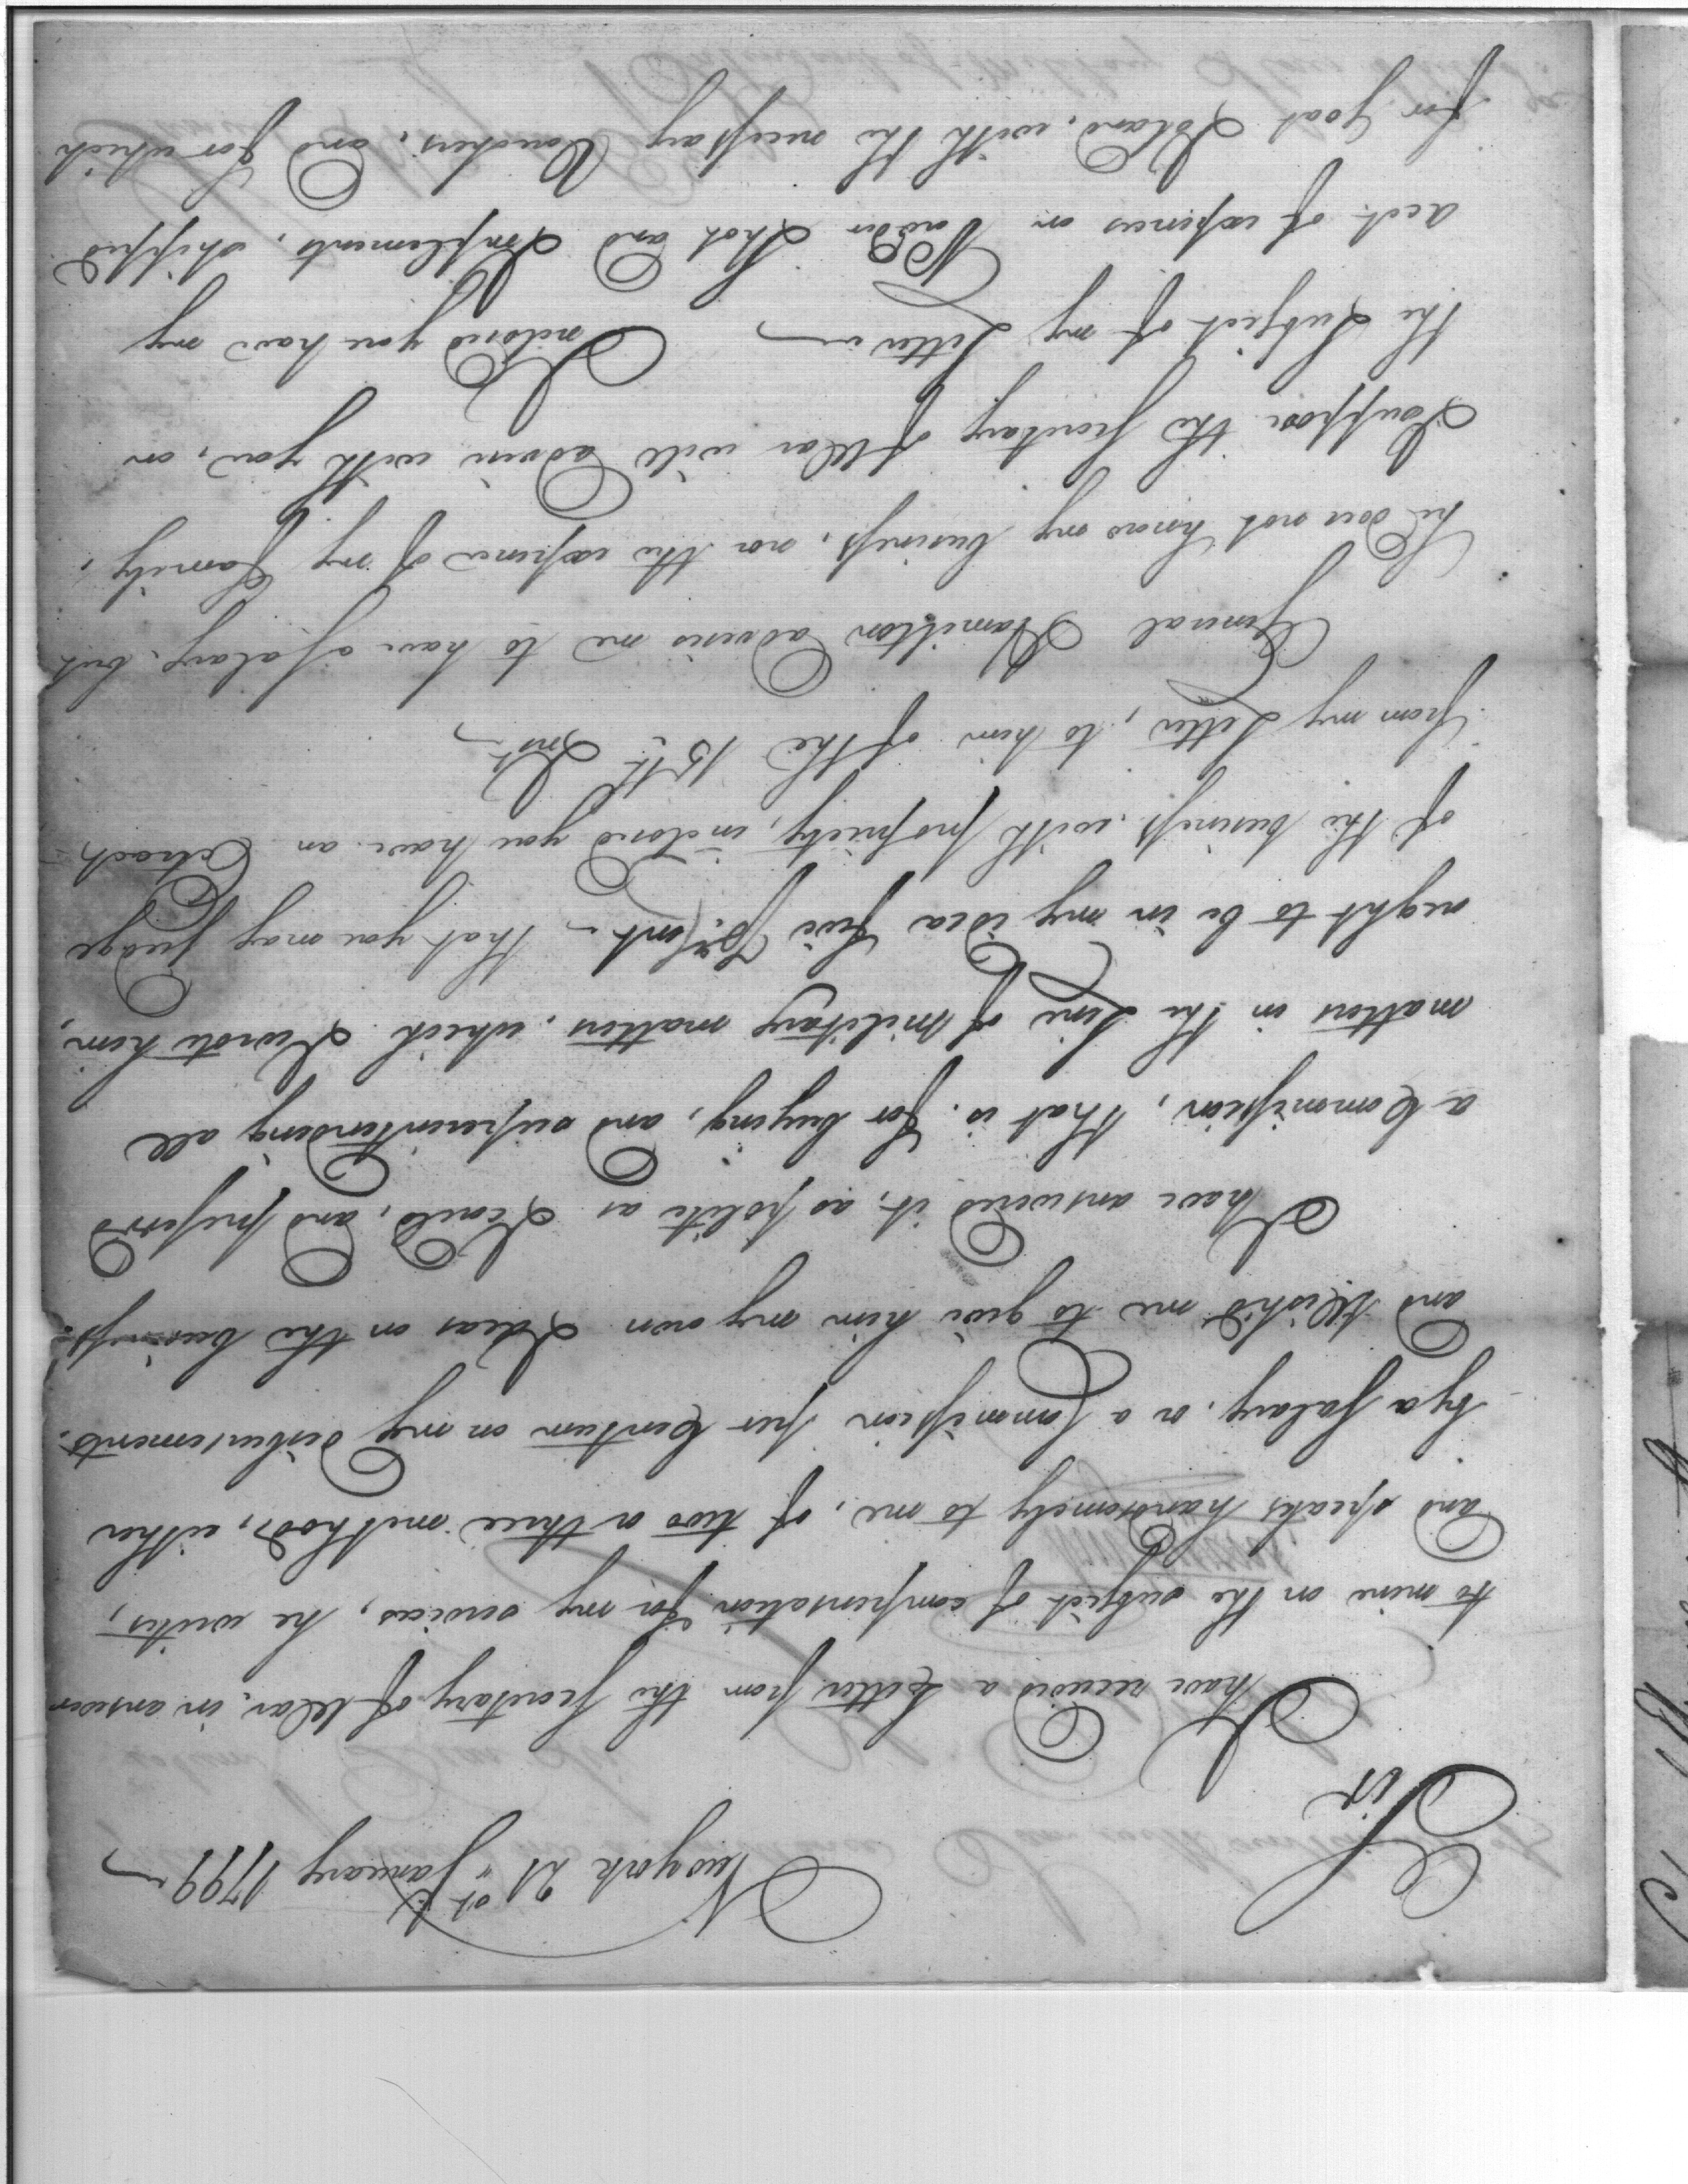 Newyork 21st January 1799
Sir
I have received a Letter from the Secretary of War, in answer
to mine on the subject of compensation for my services, he writes,
and speaks handsomely to me, of two or three methods, either
by a Salary, or a Commission per Centum on my disbursements.
and Wished me to give him my own Ideas on the business.
I have answered it, as polite as I could, and preferrd
a Commission, that is, for buying, and superintending all
matters in the Line of military matters, which I wrote him,
ought to be in my idea five P Cent— That you may judge
of the business with propriety, inclosed you have an Extract
from my Letter, to him of the 15th Inst
General Hamilton advises me to have a Salary, but
he does not know my business, nor the expence of my Family,
I suppose the Secretary of War will advise with you, on
the Subject of my Letter — Inclosed you have my
acct of expences on Powder Shot and Implements, shipped
for Goat Island, with the necessary Vouchers, and for which